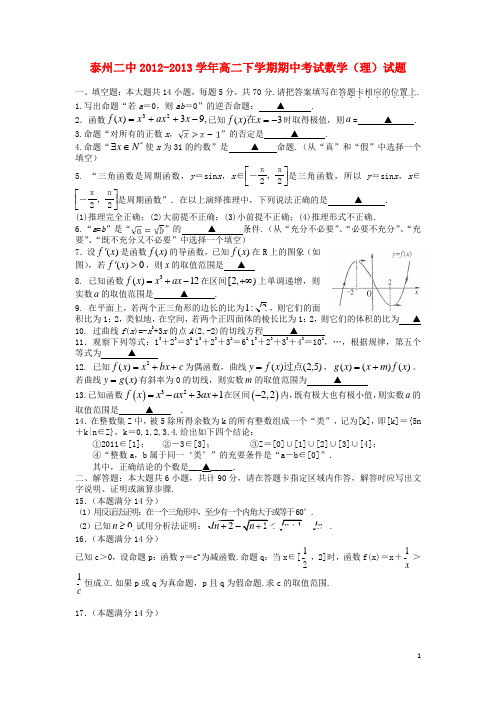 泰州二中2012-2013学年高二下学期期中考试数学（理）试题
一、填空题：本大题共14小题，每题5分，共70分.请把答案填写在答题卡相应的位置上.
1.写出命题“若a＝0，则ab＝0”的逆否命题： ▲ .
2．函数f(x)＝x³＋ax²＋3x－9,已知f(x)在x＝－3时取得极值，则a＝ ▲ .
3.命题“对所有的正数x，√x＞x－1”的否定是 ▲ .
4.命题“∃x∈N*使x为31的约数”是 ▲ 命题.(从“真”和“假”中选择一个
填空)
5. “三角函数是周期函数，y＝sinx，x∈[－π/2，π/2]是三角函数，所以 y＝sinx，x∈
[－π/2，π/2]是周期函数”．在以上演绎推理中，下列说法正确的是 ▲ .
(1)推理完全正确；(2)大前提不正确；(3)小前提不正确；(4)推理形式不正确．
6.“a=b”是“√a＝√b”的 ▲ 条件.(从“充分不必要”、“必要不充分”、“充
要”、“既不充分又不必要”中选择一个填空)
7．设f′(x)是函数f(x)的导函数，已知f(x)在R上的图象(如
图)，若f′(x)＞0，则x的取值范围是 ▲
y y=f(x)
-2 O 2 x
8. 已知函数f(x)＝x³＋ax－12在区间[2,+∞)上单调递增，则
实数a的取值范围是 ▲ .
9. 在平面上，若两个正三角形的边长的比为1:√2，则它们的面
积比为1：2，类似地，在空间，若两个正四面体的棱长比为1：2，则它们的体积的比为 ▲
10. 过曲线f(x)=-x³+3x的点A(2,-2)的切线方程 ▲
11．观察下列等式：1³＋2³＝3² 1³＋2³＋3³＝6² 1³＋2³＋3³＋4³＝10²，…，根据规律，第五个
等式为 ▲
12. 已知f(x)＝x²＋bx＋c为偶函数，曲线y＝f(x)过点(2,5)，g(x)＝(x＋m)f(x)。
若曲线y＝g(x)有斜率为0的切线，则实数m的取值范围为 ▲
13.已知函数f(x)＝x³－ax²＋3ax＋1在区间(－2,2)内，既有极大也有极小值，则实数a的
取值范围是 ▲ .
14.在整数集Z中，被5除所得余数为k的所有整数组成一个“类”，记为[k]，即[k]＝{5n
＋k|n∈Z}，k＝0,1,2,3,4.给出如下四个结论：
①2011∈[1]； ②－3∈[3]； ③Z＝[0]∪[1]∪[2]∪[3]∪[4]；
④“整数a，b属于同一‘类’”的充要条件是“a－b∈[0]”.
其中，正确结论的个数是 ▲ .
二、解答题：本大题共6小题，共计90分，请在答题卡指定区域内作答，解答时应写出文
字说明、证明或演算步骤.
15.（本题满分14分）
(1) 用反证法证明：在一个三角形中，至少有一个内角大于或等于60°.
(2) 已知n≥0,试用分析法证明：√n＋2－√n＋1＜
16.（本题满分14分）
已知c＞0，设命题p：函数y＝cˣ为减函数.命题q：当x∈[1/2，2]时，函数f(x)＝x＋1/x＞
1/c恒成立.如果p或q为真命题，p且q为假命题.求c的取值范围.
17.（本题满分14分）
1